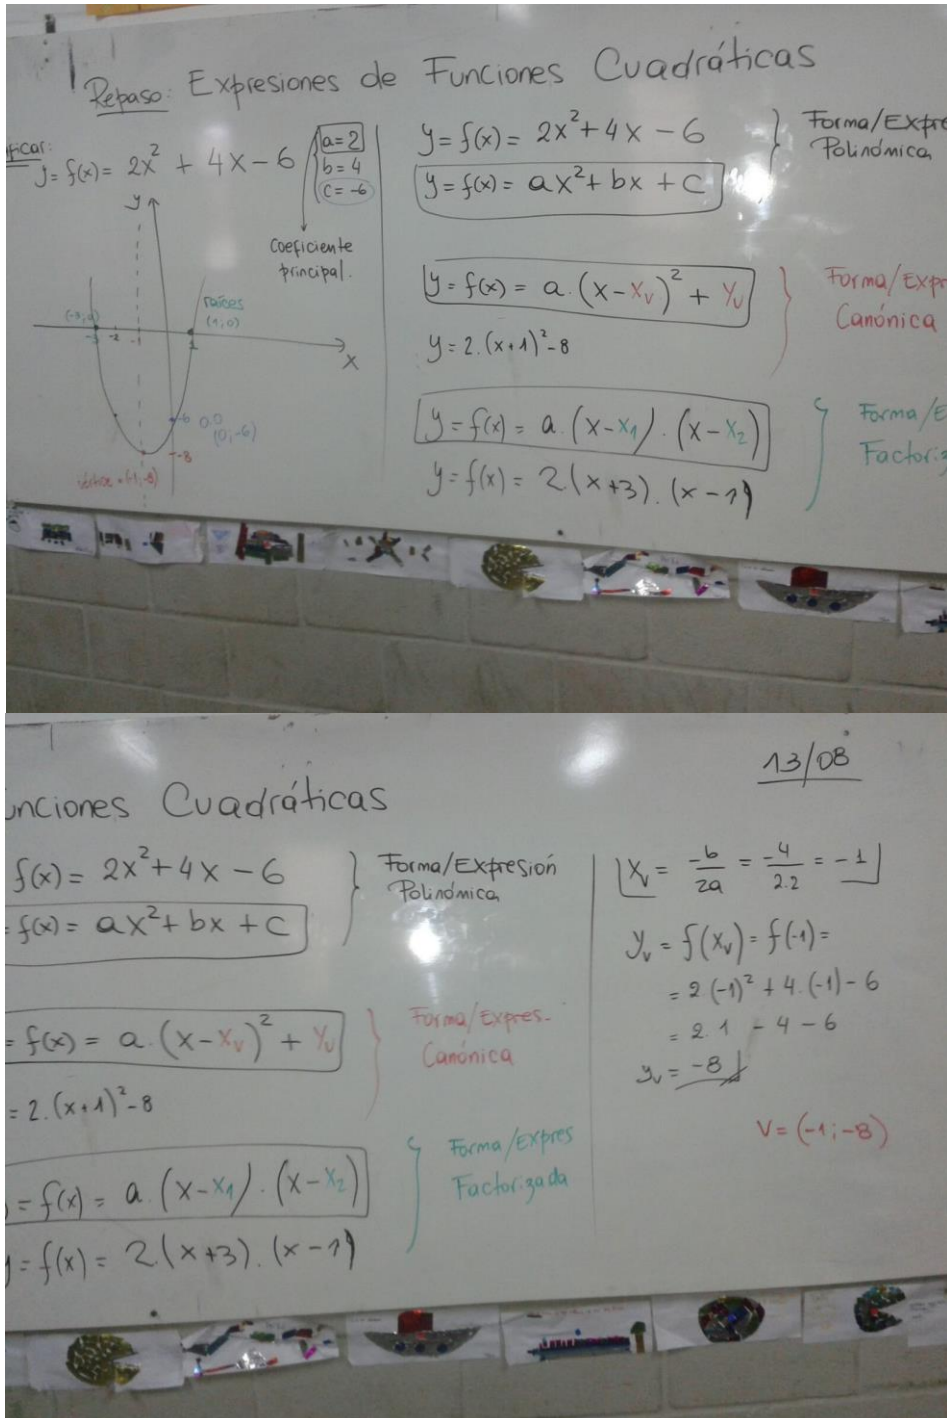 Repaso: Expresiones de Funciones Cuadráticas
ficar:
y = f(x) = 2x² + 4x - 6
a = 2
b = 4
c = -6
Coeficiente
principal.
y
raíces
(-3; 0)
(1; 0)
-3 -2 -1 1
x
-6
(0; -6)
-8
vértice = (-1; -8)
y = f(x) = 2x² + 4x - 6
y = f(x) = ax² + bx + c
Forma/Expre
Polinómica
y = f(x) = a . (x - xv)² + yv
y = 2.(x+1)² - 8
Forma/Expr
Canónica
y = f(x) = a . (x - x1) . (x - x2)
y = f(x) = 2.(x+3) . (x - 1)
Forma/E
Factoriz
13/08
unciones Cuadráticas
f(x) = 2x² + 4x - 6
= f(x) = ax² + bx + c
Forma/Expresión
Polinómica
= f(x) = a . (x - xv)² + yv
= 2.(x+1)² - 8
Forma/Expres-
Canónica
= f(x) = a . (x - x1) . (x - x2)
y = f(x) = 2.(x+3) . (x - 1)
Forma/Expres
Factorizada
xv = -b/2a = -4/2.2 = -1
yv = f(xv) = f(-1) =
= 2.(-1)² + 4.(-1) - 6
= 2.1 - 4 - 6
yv = -8
V = (-1; -8)